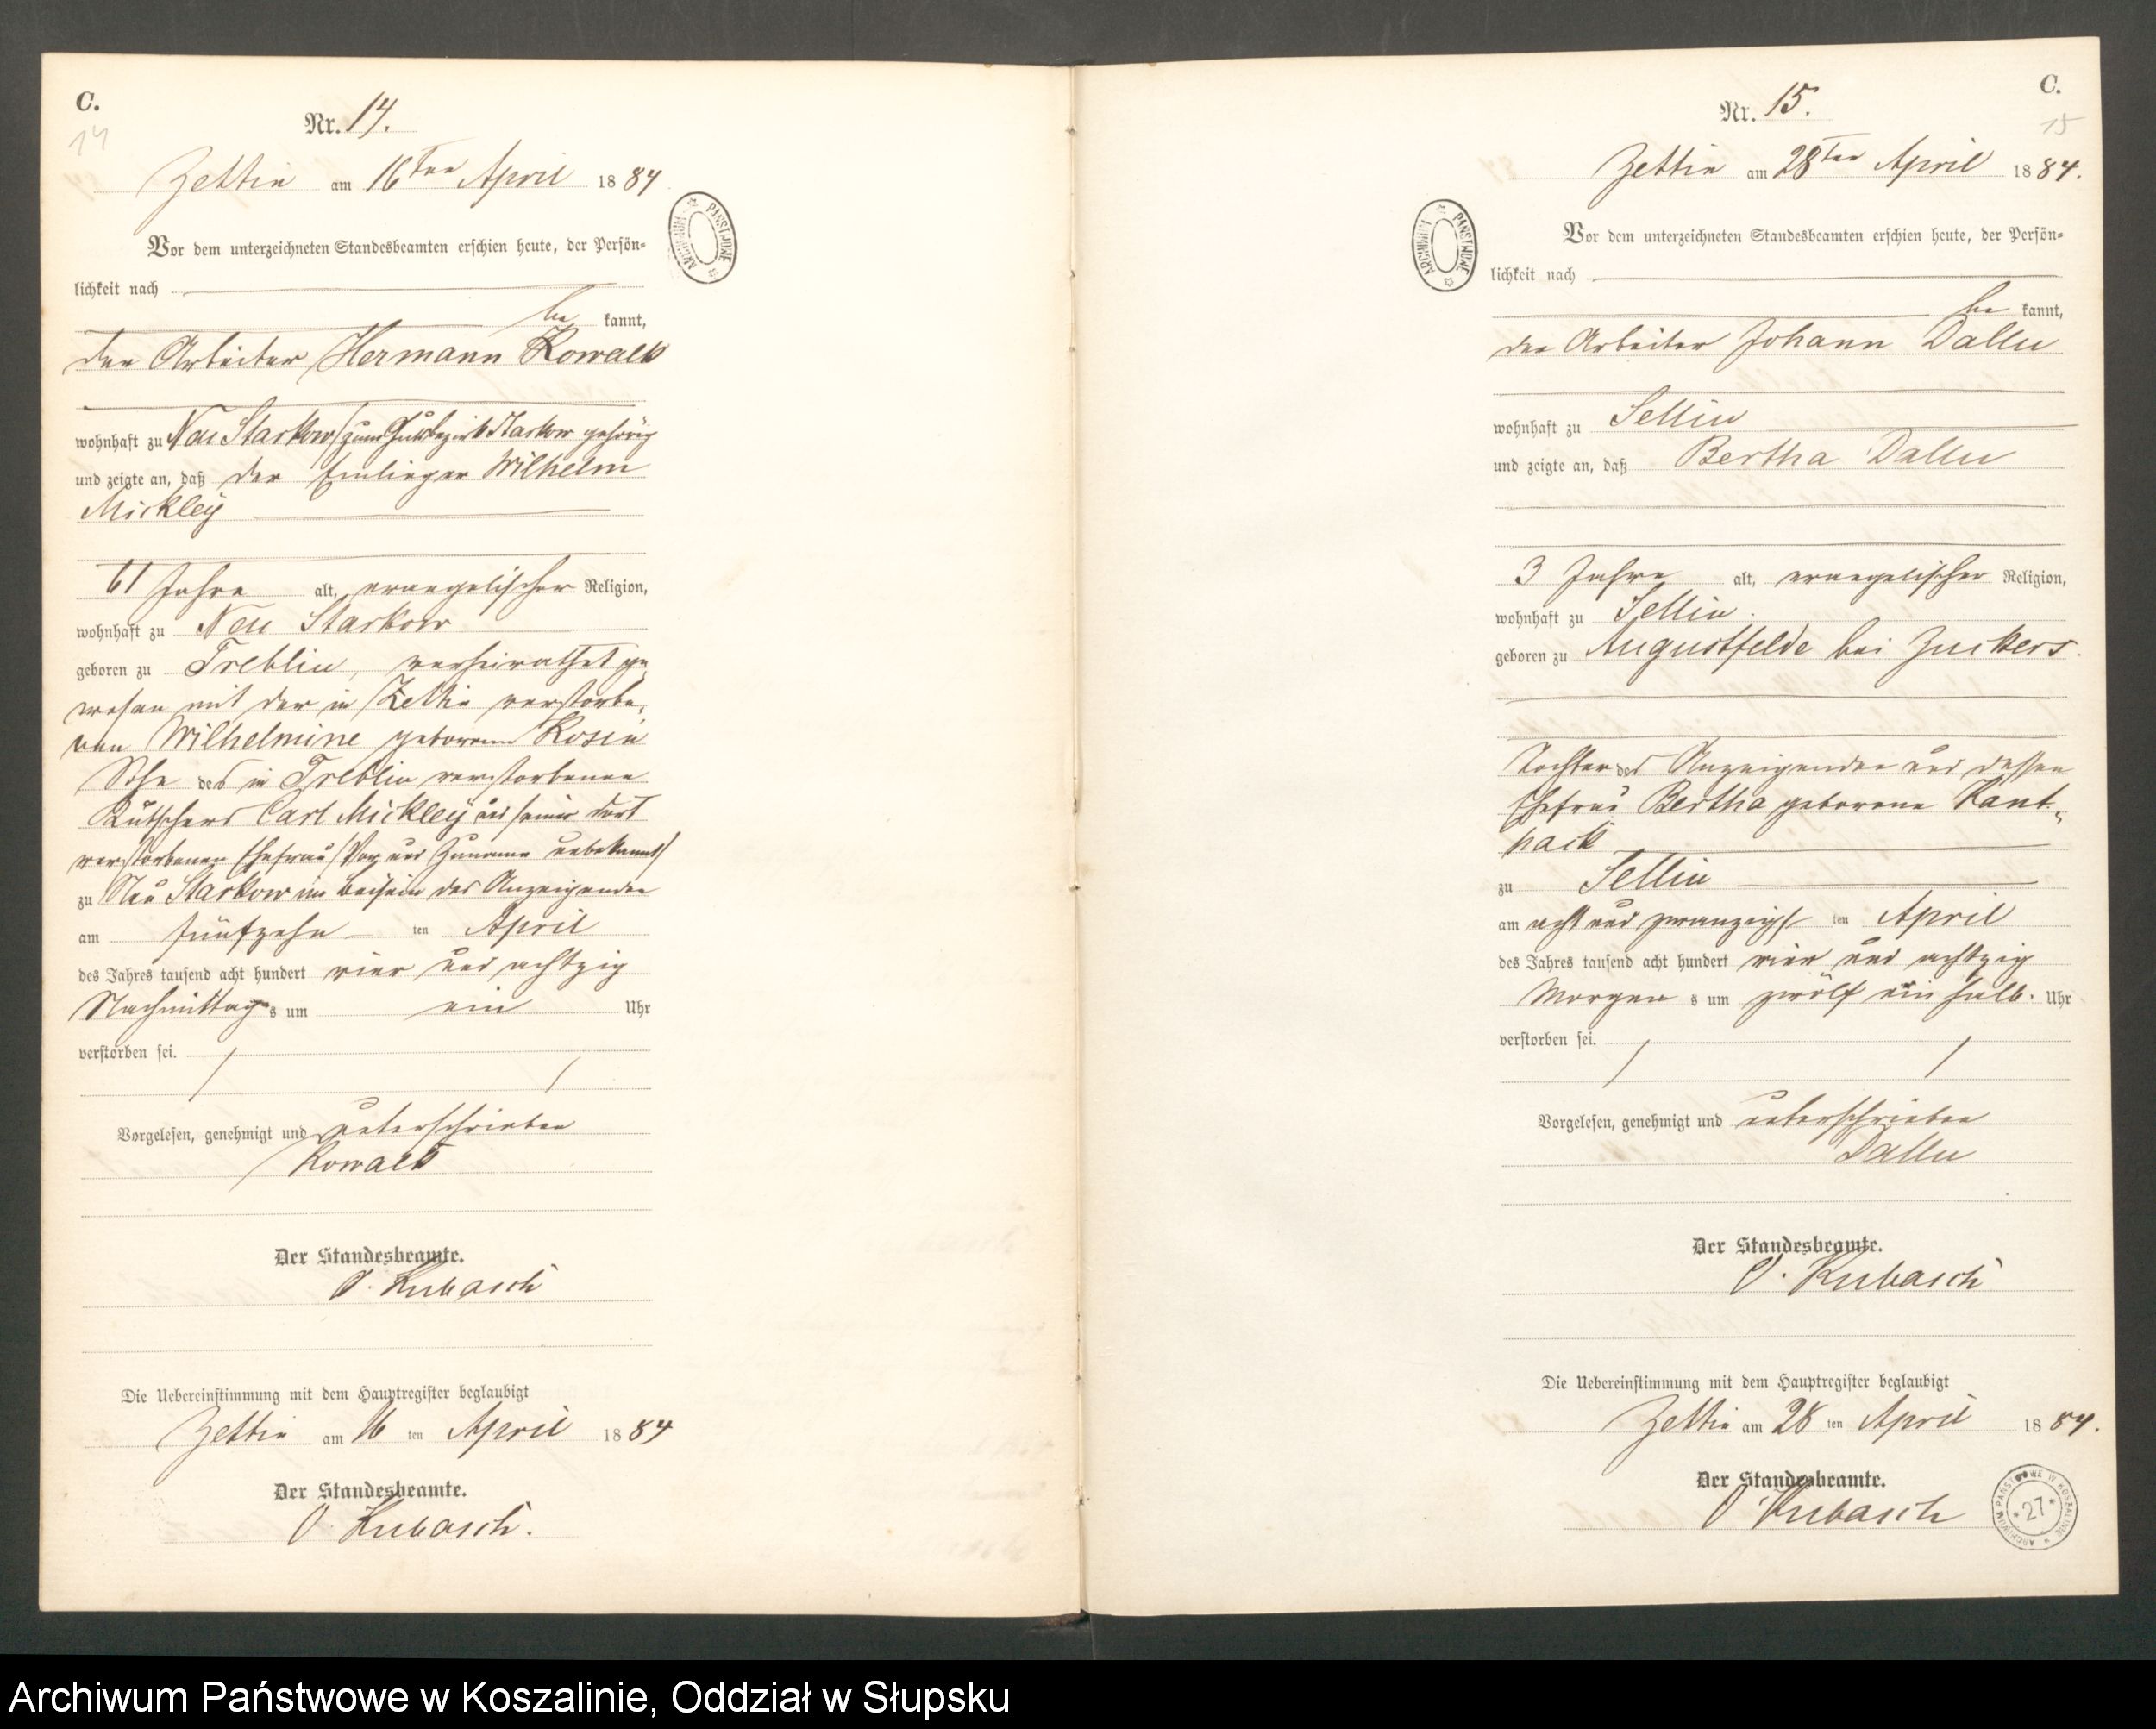 C.
14
Nr. 14.
Zettin am 16ten April 1884
Vor dem unterzeichneten Standesbeamten erschien heute, der Persön-
lichkeit nach
be kannt,
der Arbeiter Hermann Kowalk
wohnhaft zu Neu Starkow (zum Gutsbezirk Starkow gehörig
und zeigte an, daß der Einlieger Wilhelm
Mickley
61 Jahre alt, evangelischer Religion,
wohnhaft zu Neu Starkow
geboren zu Treblin, verheirathet ge
wesen mit der in Zettin verstorbe,
nen Wilhelmine geborenen Rosin
Sohn des in Treblin verstorbenen
Kutschers Carl Mickley und seiner dort
verstorbenen Ehefrau (Vor und Zuname unbekannt)
zu Neu Starkow im Beisein des Anzeigenden
am fünfzehn ten April
des Jahres tausend acht hundert vier und achtzig
Nachmittags um ein Uhr
verstorben sei.
Vorgelesen, genehmigt und unterschrieben
Kowalk
Der Standesbeamte.
O. Kubasch
Die Uebereinstimmung mit dem Hauptregister beglaubigt
Zettin am 16 ten April 1884
Der Standesbeamte.
O. Kubasch.
ARCHIWUM PAŃSTWOWE
C.
15
Nr. 15.
Zettin am 28ten April 1884.
Vor dem unterzeichneten Standesbeamten erschien heute, der Persön-
lichkeit nach
be kannt,
der Arbeiter Johann Dallu
wohnhaft zu Sellin
und zeigte an, daß Bertha Dallu
3 Jahre alt, evangelischer Religion,
wohnhaft zu Sellin.
geboren zu Augustfelde bei Zuckers.
Tochter des Anzeigenden und dessen
Ehefrau Bertha geborene Kant-
hack
zu Sellin
am acht und zwanzigs ten April
des Jahres tausend acht hundert vier und achtzig
Morgens um zwölf ein halb. Uhr
verstorben sei.
Vorgelesen, genehmigt und unterschrieben
Dallu
Der Standesbeamte.
O. Kubasch
Die Uebereinstimmung mit dem Hauptregister beglaubigt
Zettin am 28 ten April 1884.
Der Standesbeamte.
O. Kubasch
ARCHIWUM PAŃSTWOWE
ARCHIWUM PAŃSTWOWE W KOSZALINIE
* 27 *
Archiwum Państwowe w Koszalinie, Oddział w Słupsku